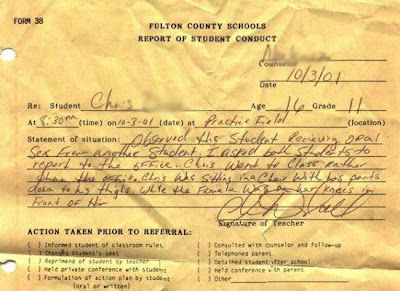 FORM 38
FULTON COUNTY SCHOOLS
REPORT OF STUDENT CONDUCT
Counselor
10/3/01
Date
Re: Student Chris Age 16 Grade 11
At 8:30 (time) on 10-3-01 (date) at Practice Field (location)
Statement of situation: Observed this Student Recieving oral
Sex from another Student. I asked both students to
report to the office. Chris Went to Class Rather
than the office. Chris Was Sitting in a Chair With his pants
down to his thighs While the Female Was on her knees in
Front of Him
Signature of Teacher
ACTION TAKEN PRIOR TO REFERRAL:
( ) Informed student of classroom rules
( ) Changed student's seat
( ) Reprimand of student by teacher
( ) Held private conference with student
( ) Formulation of action plan by student
(oral or written)
( ) Consulted with counselor and follow-up
( ) Telephoned parent
( ) Detained student after school
( ) Held conference with parent
( ) Other